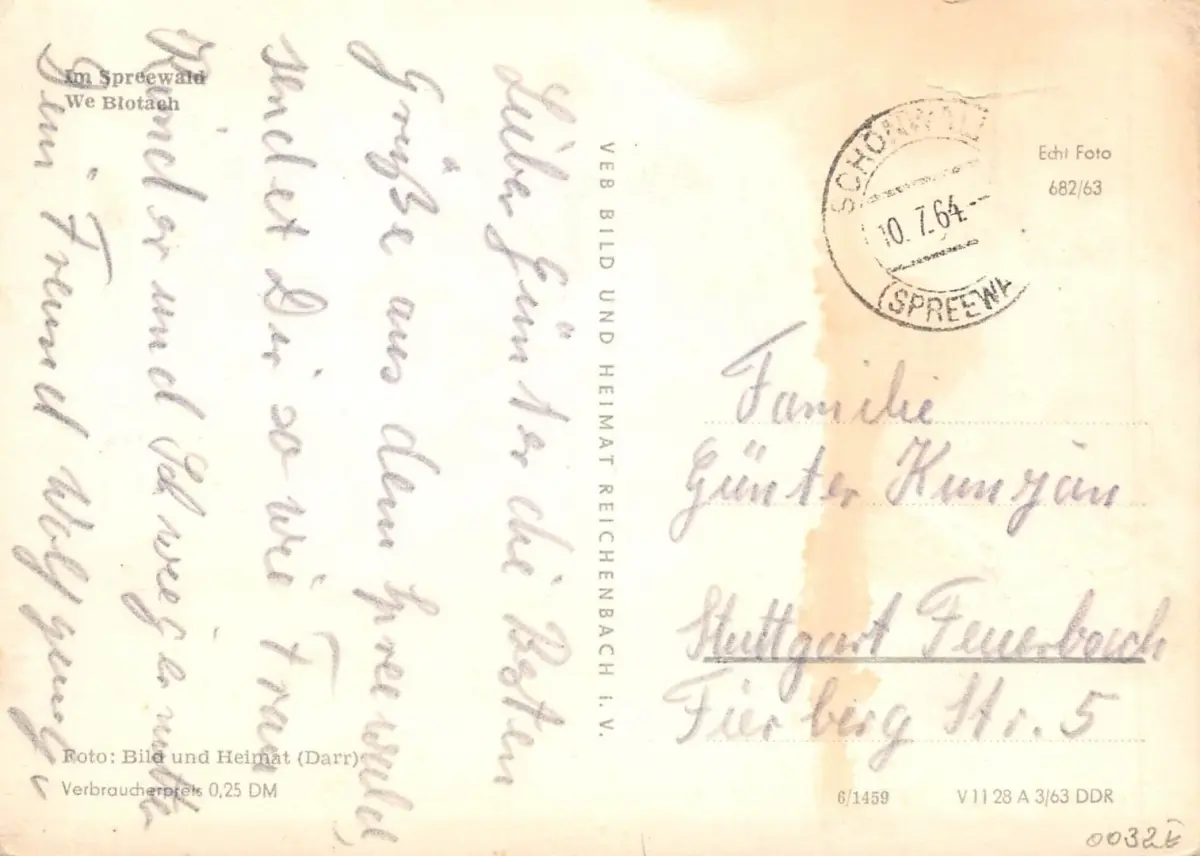 Im Spreewald
We Blotach
Lieber Günter die Besten
Grüße aus dem Spreewald,
sendet Dir so wie Frau
Kinder und Schwiegermutter
Dein Freund Wolfgang.
VEB BILD UND HEIMAT REICHENBACH i. V.
Foto: Bild und Heimat (Darr)
Verbraucherpreis 0,25 DM
SCHÖNWALD
10.7.64
(SPREEW
Echt Foto
682/63
Familie
Günter Kunzjan
Stuttgart Feuerbach
Fierberg Str. 5
6/1459
V 11 28 A 3/63 DDR